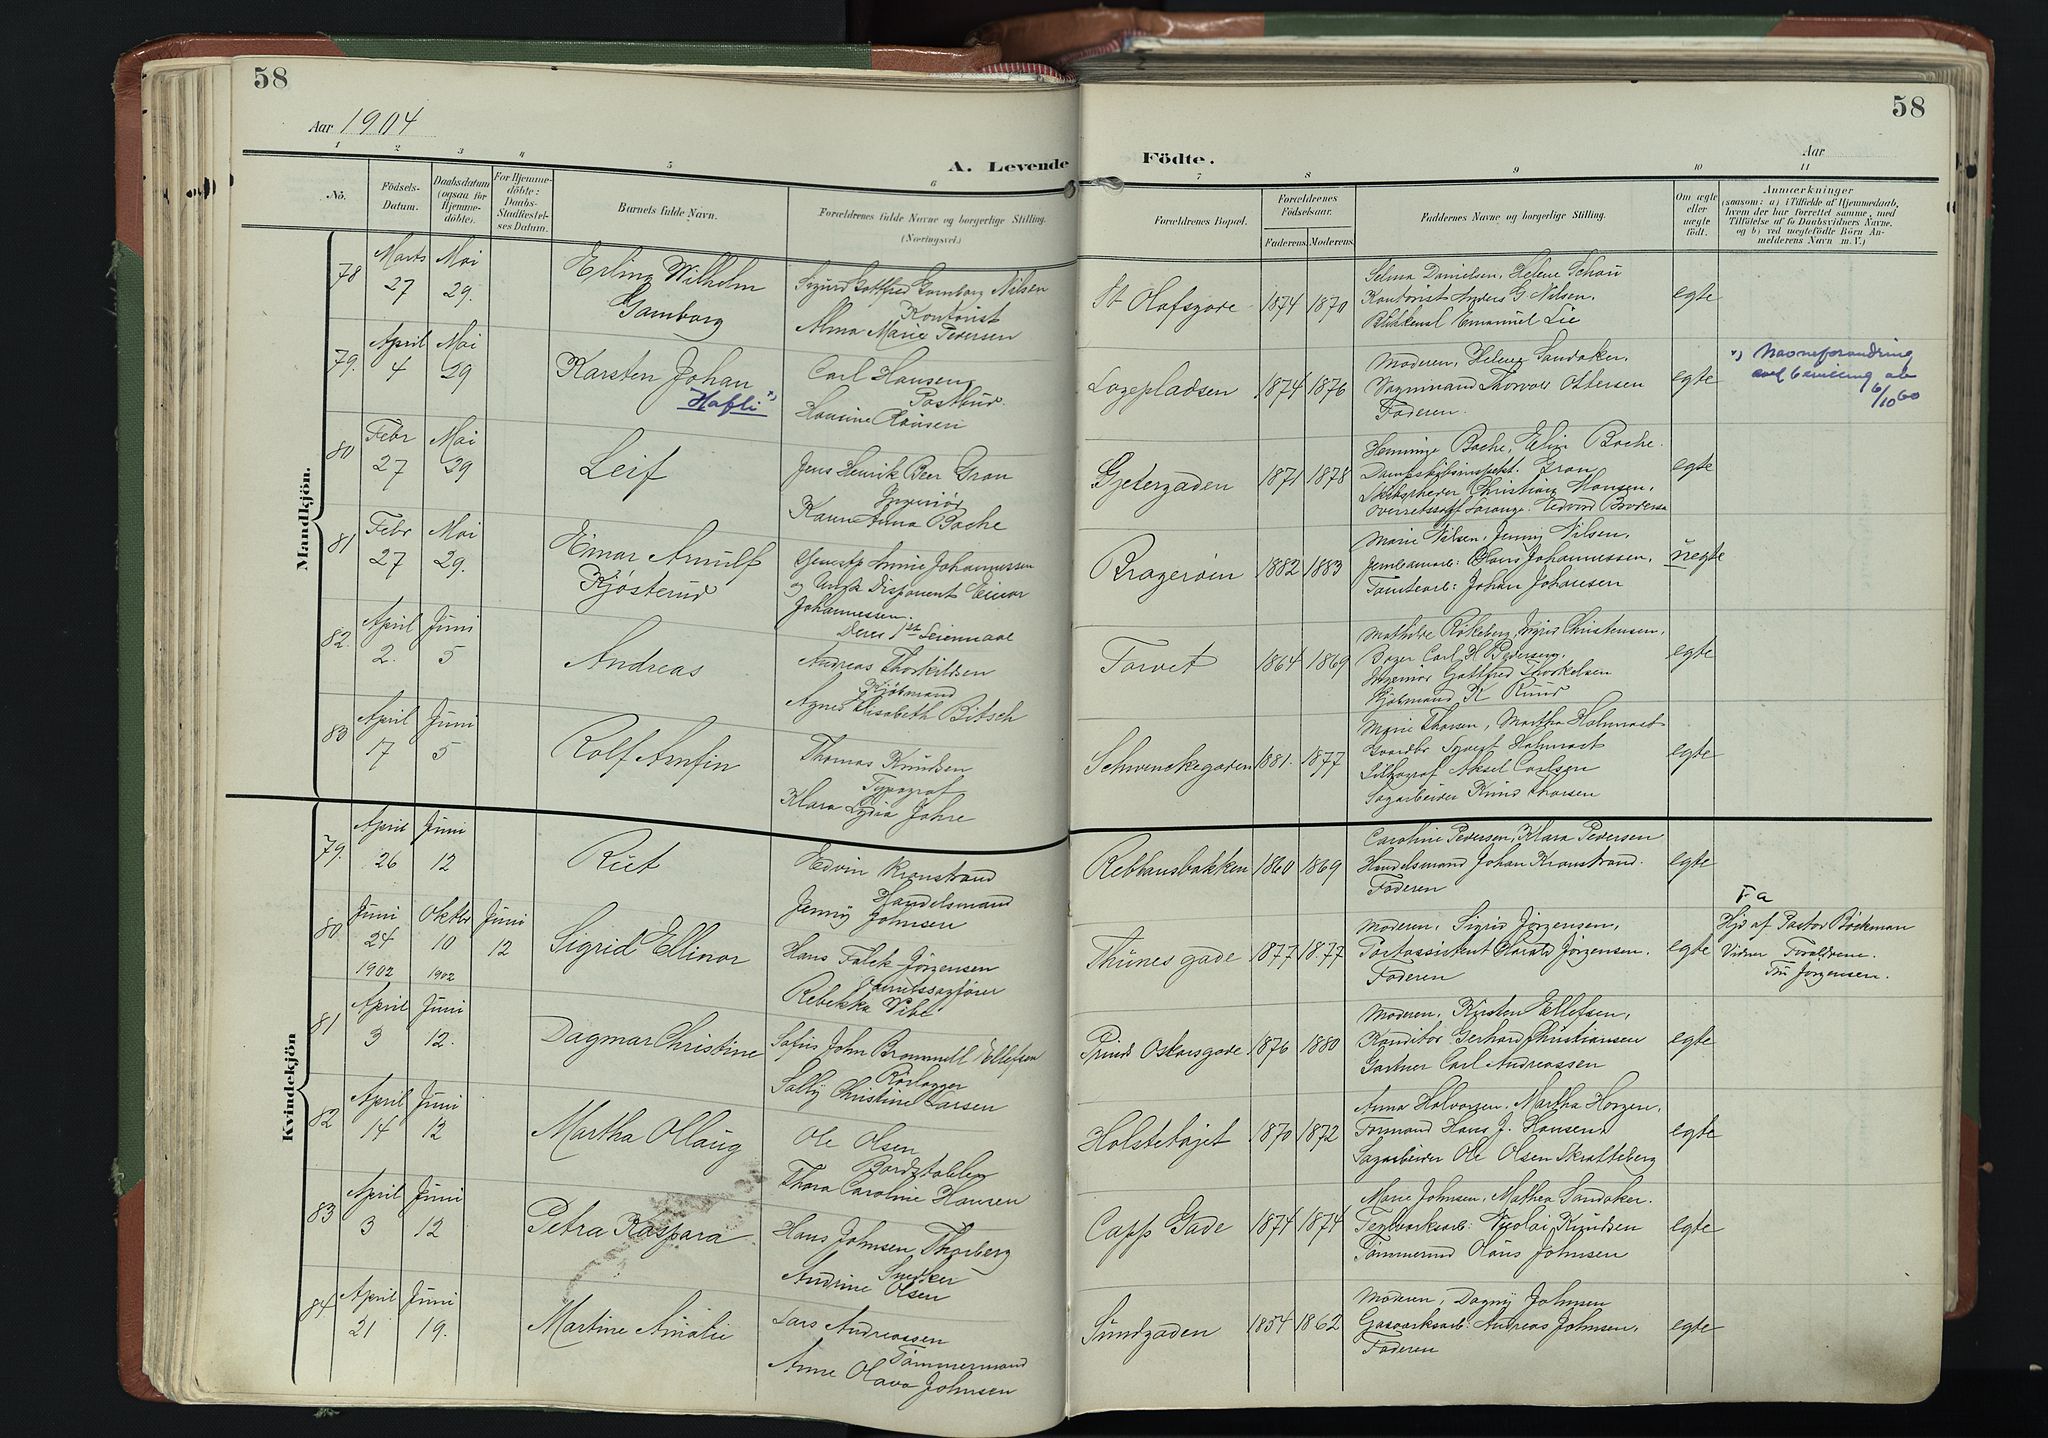 58
58
Aar 1904
Aar
A. Levende Födte.
1 2 3 4 5 6 7 8 9 10 11
No.
Födsels-Datum.
Daabsdatum (ogsaa for Hjemme-döbte).
For Hjemme-döbte: Daabs-Stadfæstel-ses Datum.
Barnets fulde Navn.
Forældrenes fulde Navne og borgerlige Stilling.
(Næringsvei.)
Forældrenes Bopæl.
Forældrenes Födselsaar.
Faderens. Moderens.
Faddernes Navne og borgerlige Stilling.
Om ægte eller uægte födt.
Anmærkninger
(saasom: a) i Tilfælde af Hjemmedaab, hvem der har forrettet samme, med Tilföielse af to Daabsvidners Navne, og b) ved uægtefödte Börn An-melderens Navn m. V.)
Mandkjön.
78 Marts 27 Mai 29.
Erling Wilhelm
Gamborg
Sigurd Gottfred Gamborg Nilsen
Kontorist
Alma Marie Pedersen
St Olafsgade 1874 1870
Selma Danielsen, Helene Schou
Kontorist Anders G. Nilsen.
Emanuel Lie
egte
79. April 4 Mai 29
Karsten Johan
Hafli
Carl Hansen
Postbud.
Hansine Hansen
Logepladsen 1874 1876
Moderen, Helene Sandaker.
Vognmand Thorvald Ottersen
Faderen.
egte
Navneforandring
ved bevilling av
6/10 60
80 Febr 27 Mai 29
Leif
Jens Henrik Beer Gran
Ingeniör
Anna Bache
Gjetergaden 1871 1878
Henninge Bache, Elise Bache.
Dampskibsinspekt. Gran
Skibsreder Christian Hansen,
egte
81 Febr 27 Mai 29.
Einar Arnulf
Kjösterud
Johannessen
og Ungk Disponent Einar
Johannessen.
Deres 1ste Leiermaal
Brageröen 1882 1883
Marie Nilsen, Jenny Nilsen,
Jernbanearb: Hans Johannessen,
Tomtearb: Johan Johansen
uegte
82. April 2. Juni 5
Andreas
Andreas Thorkildsen
Kjöbmand
Agnes Elisabeth Bitsch
Torvet 1864 1869
Mathilde Rökeberg, Sigrid Christensen,
Bager Carl H Pedersen,
Ingeniör Gottfred Thorkelsen
Kjöbmand K Ruud
egte
83 April 17 Juni 5
Rolf Arnfin
Thomas Knudsen
Typograf
Klara Lydia Johre
Schwenckegaden 1881. 1877
Marie Thorsen, Martha Holmrast
Gaardbr Syvert Holmrast
Lithograf Aksel Carlsen
Sagarbeider Knud Thorsen
egte
Kvindekjön
79. April 26 Juni 12
Rut
Edvin Kronstrand
Handelsmand
Jenny Johnsen
Rebbansbakken 1860 1869
Caroline Pedersen, Klara Pedersen
Handelsmand Johan Kronstrand.
Faderen
egte
80. Juni 24 1902 Oktbr 10 1902 Juni 12
Sigrid Ellinor
Hans Falck-Jörgensen
Overretssagförer
Rebekka Vibe
Thunes gade 1877 1877
Moderen, Sigrid Jörgensen,
Postassistent Harald Jörgensen.
Faderen
egte
Hjd af Pastor Böckman
Vidner Forældrene.
Fru Jörgensen.
81 April 3 Juni 12.
Dagmar Christine
Sofus John Brommell Ellefsen
Rörlægger
Sally Christine Larsen
Prinds Oskarsgade 1876 1880
Moderen, Kirsten Ellefsen,
Konditor Gerhard Christiansen
Gartner Carl Andreassen
egte
82 April 14 Juni 12
Martha Ollaug
Ole Olsen
Bordstabler
Thora Caroline Hansen
Holstehöjet 1870 1872
Anna Halvorsen, Martha Horgen,
Formand Hans J. Hansen,
Sagarbeider Ole Olsen Skratteberg
egte
83 April 3 Juni 12
Petra Kaspara
Hans Johnsen Thorberg
Snedker
Andrine Olsen
Capps Gade 1874 1874
Marie Johnsen, Mathea Sandaker.
Teglverksarb: Nicolai Knudsen
Tömmermd Claus Johnsen
egte
84. April 21 Juni 19.
Martine Amalie
Lars Andreassen
Tömmermand
Anne Olava Johnsen
Sundgaden 1854 1862
Moderen, Dagny Johnsen
Gasverksarb: Andreas Johnsen,
Faderen
egte